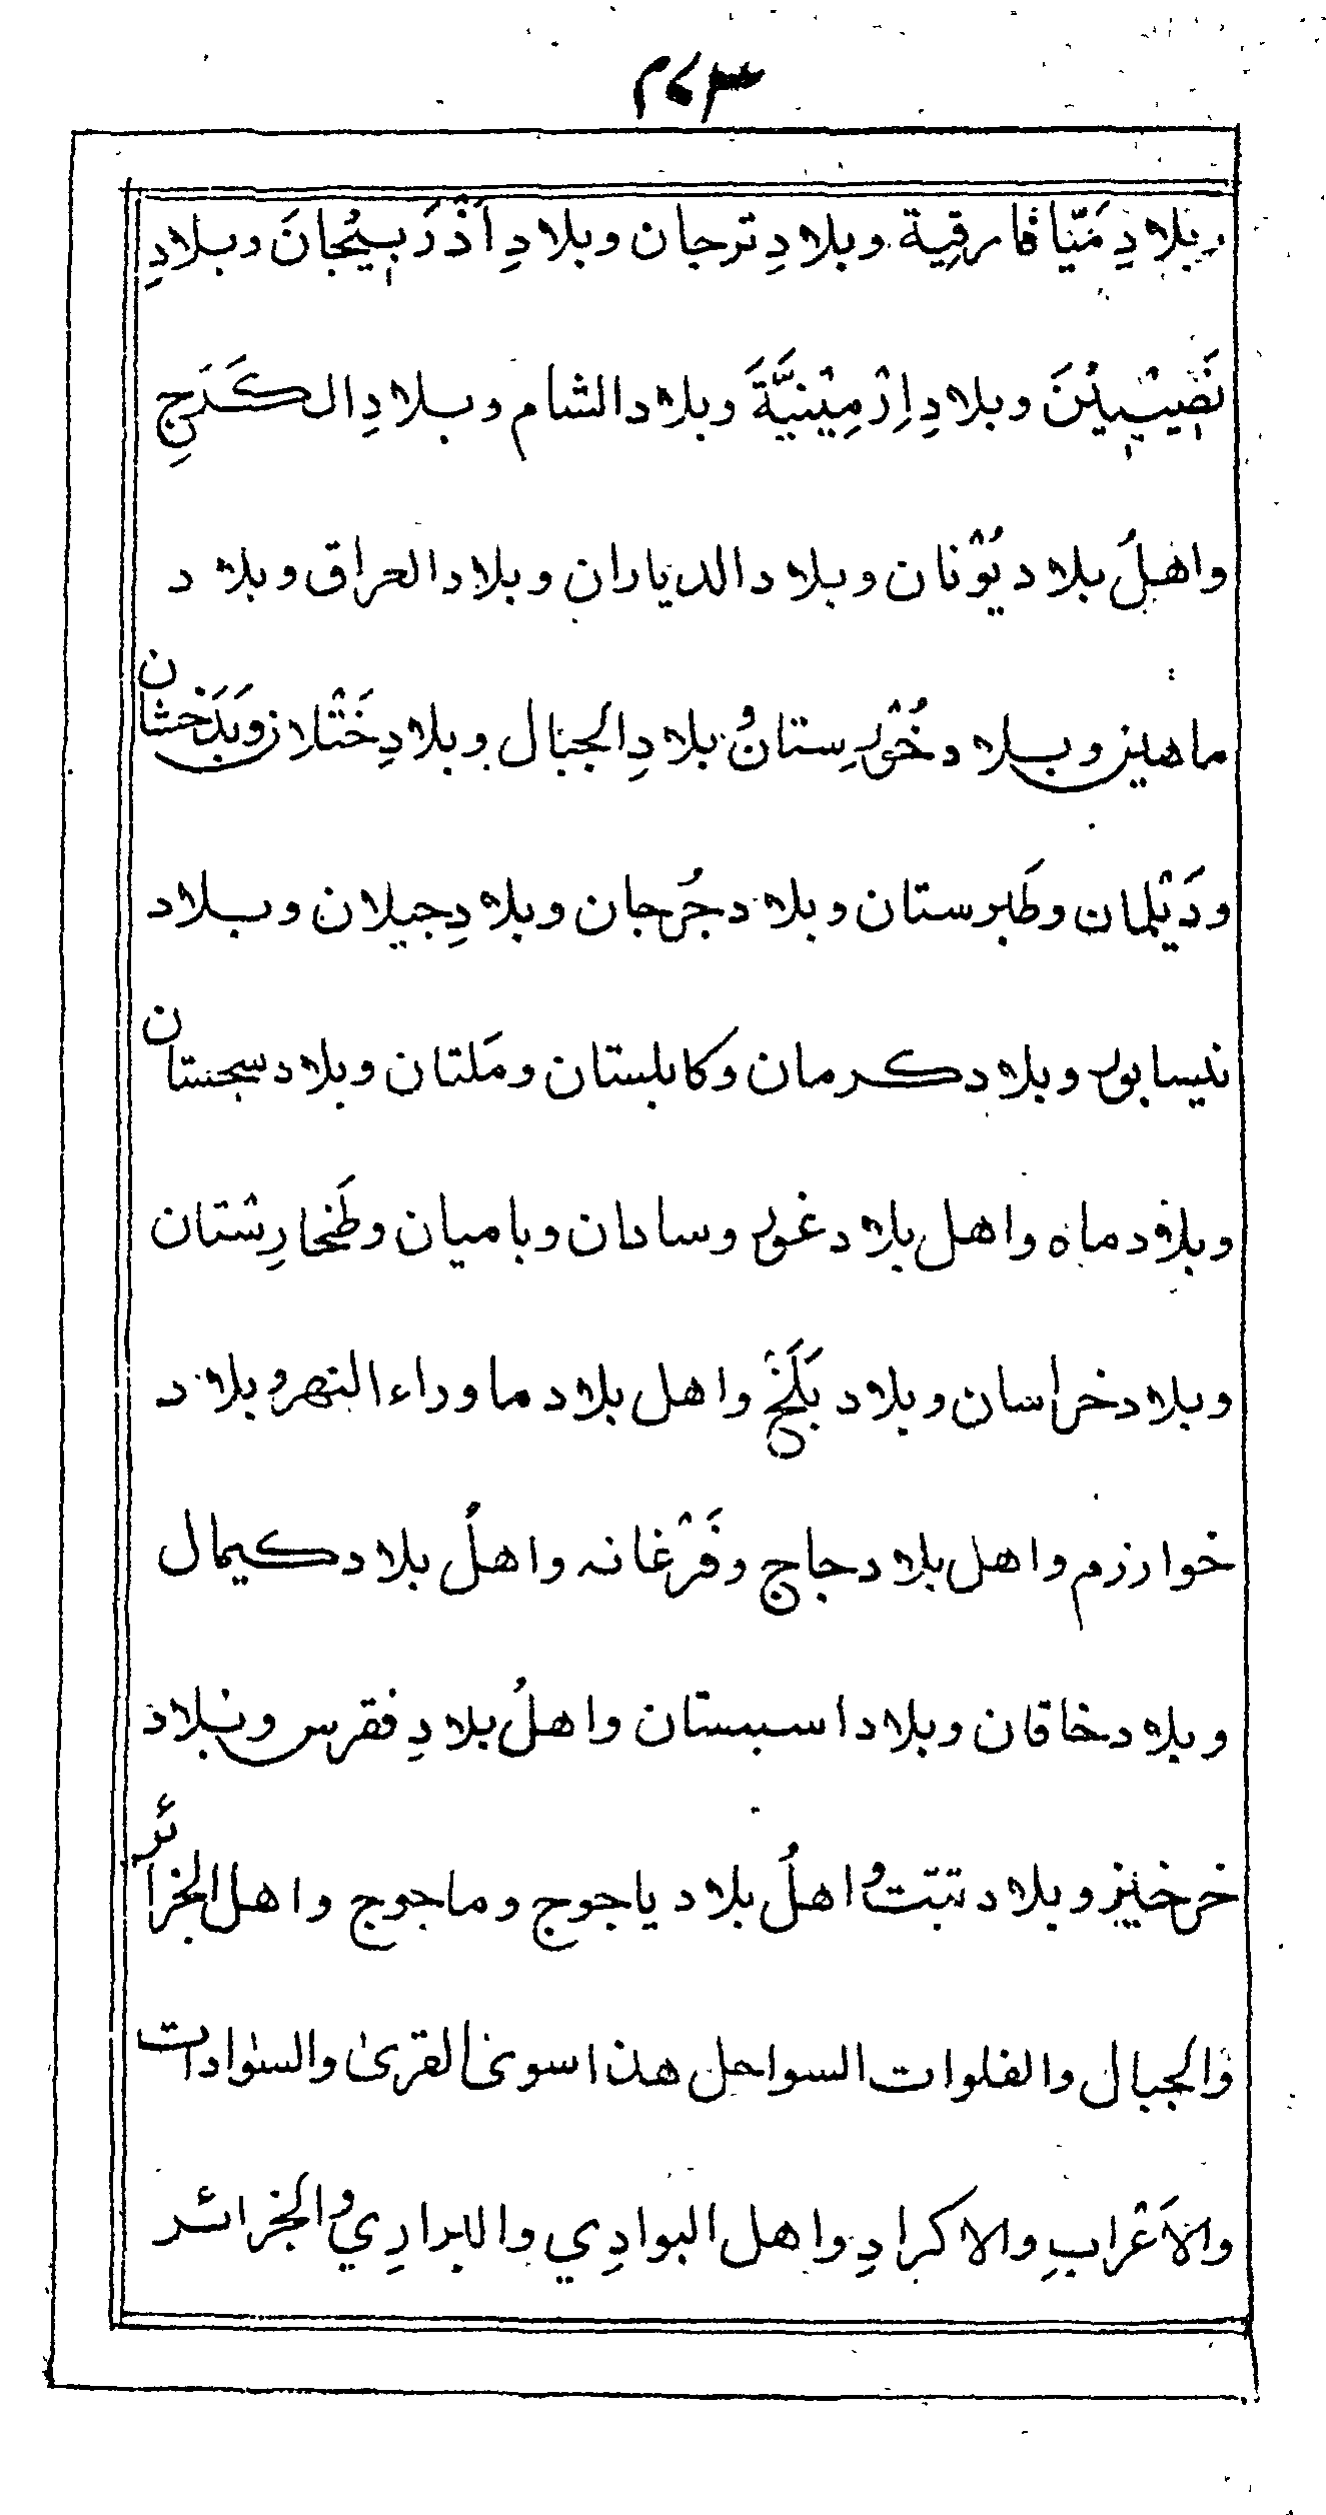 وبلادِ مَيّا فارقية وبلادِ ترجان وبلادِ اَذْرَبيْجانَ وبلادِ
نَصِيْبِيْنَ وبلادِ اِرْمِيْنِيَّةَ وبلاد الشام وبلادِ ال كَرَجِ
واهلُ بلاد يُوْنان وبلاد الدياران وبلاد العراق وبلاد
ماهين وبلاد خُوْرِستان وُبلادِ الجبال وبلادِ خَتْلان وبَدَخشان
ودَيْلمان وطَبرستان وبلاد جُرجان وبلادِ جيلان وبلاد
نيسابور وبلاد كرمان وكابلستان ومَلتان وبلاد سجستان
وبلاد ماه واهل بلاد غور وسادان وباميان وطَخارِشتان
وبلاد خراسان وبلاد بَلَخْ واهل بلاد ماوراء النهر وبلاد
خوارزم واهل بلاد جاج وفَرْغانه واهلُ بلاد كيمال
وبلاد خاقان وبلاد اسبستان واهلُ بلادِ فقرس وبلاد
خرخيز وبلاد تبت وُاهلُ بلاد ياجوج وماجوج واهل الجزائر
والجبال والفلوات السواحل هذا سوى القرىٰ والسوادات
والاَعْرابِ والاكرادِ واهل البوادِي والبرادِي والجزائر